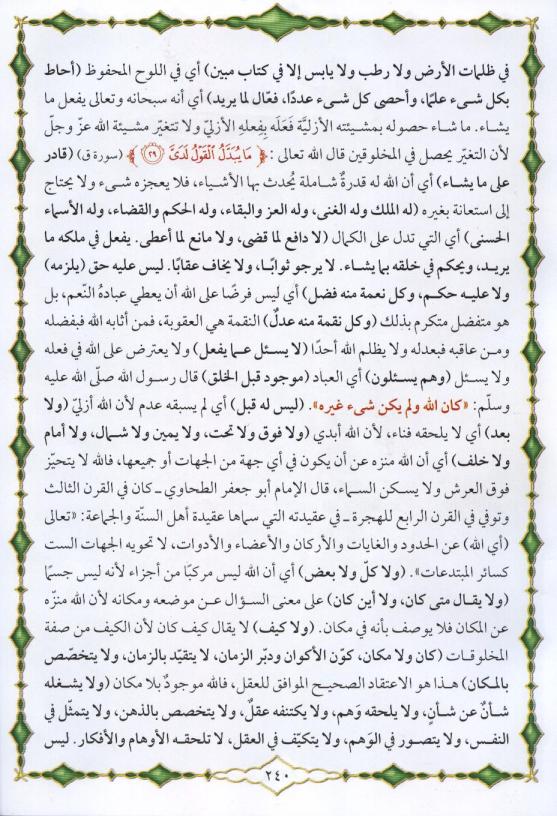 في ظلمات الأرض ولا رطب ولا يابس إلا في كتاب مبين) أي في اللوح المحفوظ (أحاط
بكل شىء علمًا، وأحصى كل شىء عددًا، فعّال لما يريد) أي أنه سبحانه وتعالى يفعل ما
يشاء. ما شاء حصوله بمشيئته الأزليَّة فَعَلَه بِفعلِهِ الأزليّ ولا تتغير مشيئة الله عزّ وجلّ
لأن التغيّر يحصل في المخلوقين قال الله تعالى: ﴿مَا يُبَدَّلُ ٱلْقَوْلُ لَدَىَّ ﴿٢٩﴾﴾ (سورة ق) (قادر
على ما يشاء) أي أن الله له قدرةٌ شاملة يُحدث بها الأشياء، فلا يعجزه شىء ولا يحتاج
إلى استعانة بغيره (له الملك وله الغنى، وله العز والبقاء، وله الحكم والقضاء، وله الأسماء
الحسنى) أي التي تدل على الكمال (لا دافع لما قضى، ولا مانع لما أعطى. يفعل في ملكه ما
يريد، ويحكم في خلقه بما يشاء. لا يرجو ثوابًا، ولا يخاف عقابًا. ليس عليه حق (يلزمه)
ولا عليه حكم، وكل نعمة منه فضل) أي ليس فرضًا على الله أن يعطي عبادهُ النّعم، بل
هو متفضل متكرم بذلك (وكل نقمة منه عدلٌ) النقمة هي العقوبة، فمن أثابه الله فبفضله
ومن عاقبه فبعدله ولا يظلم الله أحدًا (لا يسئل عما يفعل) ولا يعترض على الله في فعله
ولا يسئل (وهم يسئلون) أي العباد (موجود قبل الخلق) قال رسول الله صلّى الله عليه
وسلّم: «كان الله ولم يكن شىء غيره». (ليس له قبل) أي لم يسبقه عدم لأن الله أزليّ (ولا
بعد) أي لا يلحقه فناء، لأن الله أبدي (ولا فوق ولا تحت، ولا يمين ولا شمال، ولا أمام
ولا خلف) أي أن الله منزه عن أن يكون في أي جهة من الجهات أو جميعها، فالله لا يتحيّز
فوق العرش ولا يسكن السماء، قال الإمام أبو جعفر الطحاوي ـ كان في القرن الثالث
وتوفي في القرن الرابع للهجرة ـ في عقيدته التي سماها عقيدة أهل السنّة والجماعة: «تعالى
(أي الله) عن الحدود والغايات والأركان والأعضاء والأدوات، لا تحويه الجهات الست
كسائر المبتدعات». (ولا كلّ ولا بعض) أي أن الله ليس مركبًا من أجزاء لأنه ليس جسمًا
(ولا يقال متى كان، ولا أين كان) على معنى السؤال عن موضعه ومكانه لأن الله منزّه
عن المكان فلا يوصف بأنه في مكان. (ولا كيف) لا يقال كيف كان لأن الكيف من صفة
المخلوقات (كان ولا مكان، كوّن الأكوان ودبّر الزمان، لا يتقيّد بالزمان، ولا يتخصّص
بالمكان) هذا هو الاعتقاد الصحيح الموافق للعقل، فالله موجودٌ بلا مكان (ولا يشغله
شأنٌ عن شأنٍ، ولا يلحقه وَهم، ولا يكتنفه عقلٌ، ولا يتخصص بالذهن، ولا يتمثّل في
النفس، ولا يتصور في الوَهم، ولا يتكيّف في العقل، لا تلحقه الأوهام والأفكار. ليس
٢٤٠